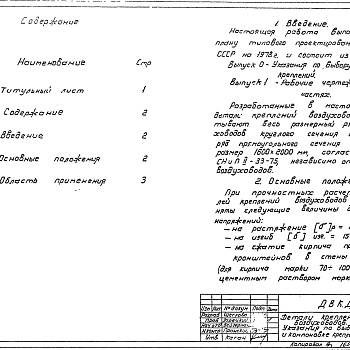 Содержание
Наименование Стр
Титульный лист 1
Содержание 2
Введение 2
Основные положения 2
Область применения 3
1. Введение.
Настоящая работа выпо
плану типового проектирован
СССР на 1978г. и состоит из
Выпуск 0 - Указания по выбору
креплений.
Выпуск 1 - Рабочие чертеж
частях.
Разработанные в насто
детали креплений воздуховод
тывают весь размерный р
ховодов круглого сечения
ряд прямоугольного сечения
размер 1600×2000 мм, соглас
СНиП II-33-75, независимо от
воздуховодов.
2. Основные положе
При прочностных расчет
лей креплений воздуховодов
няты следующие величины д
напряжений:
- на растяжение [σ]р =
- на изгиб [σ] изг. = 15
- на сжатие кирпича пр
кронштейнов в стены
(для кирпича марки 70÷100
цементным раствором марк
ДВКД
Изм Лист № докум Подп. Дата
Детали креплен
воздуховодов.
Указания по выб
и компоновке крепле
Утв Каган
Копировал